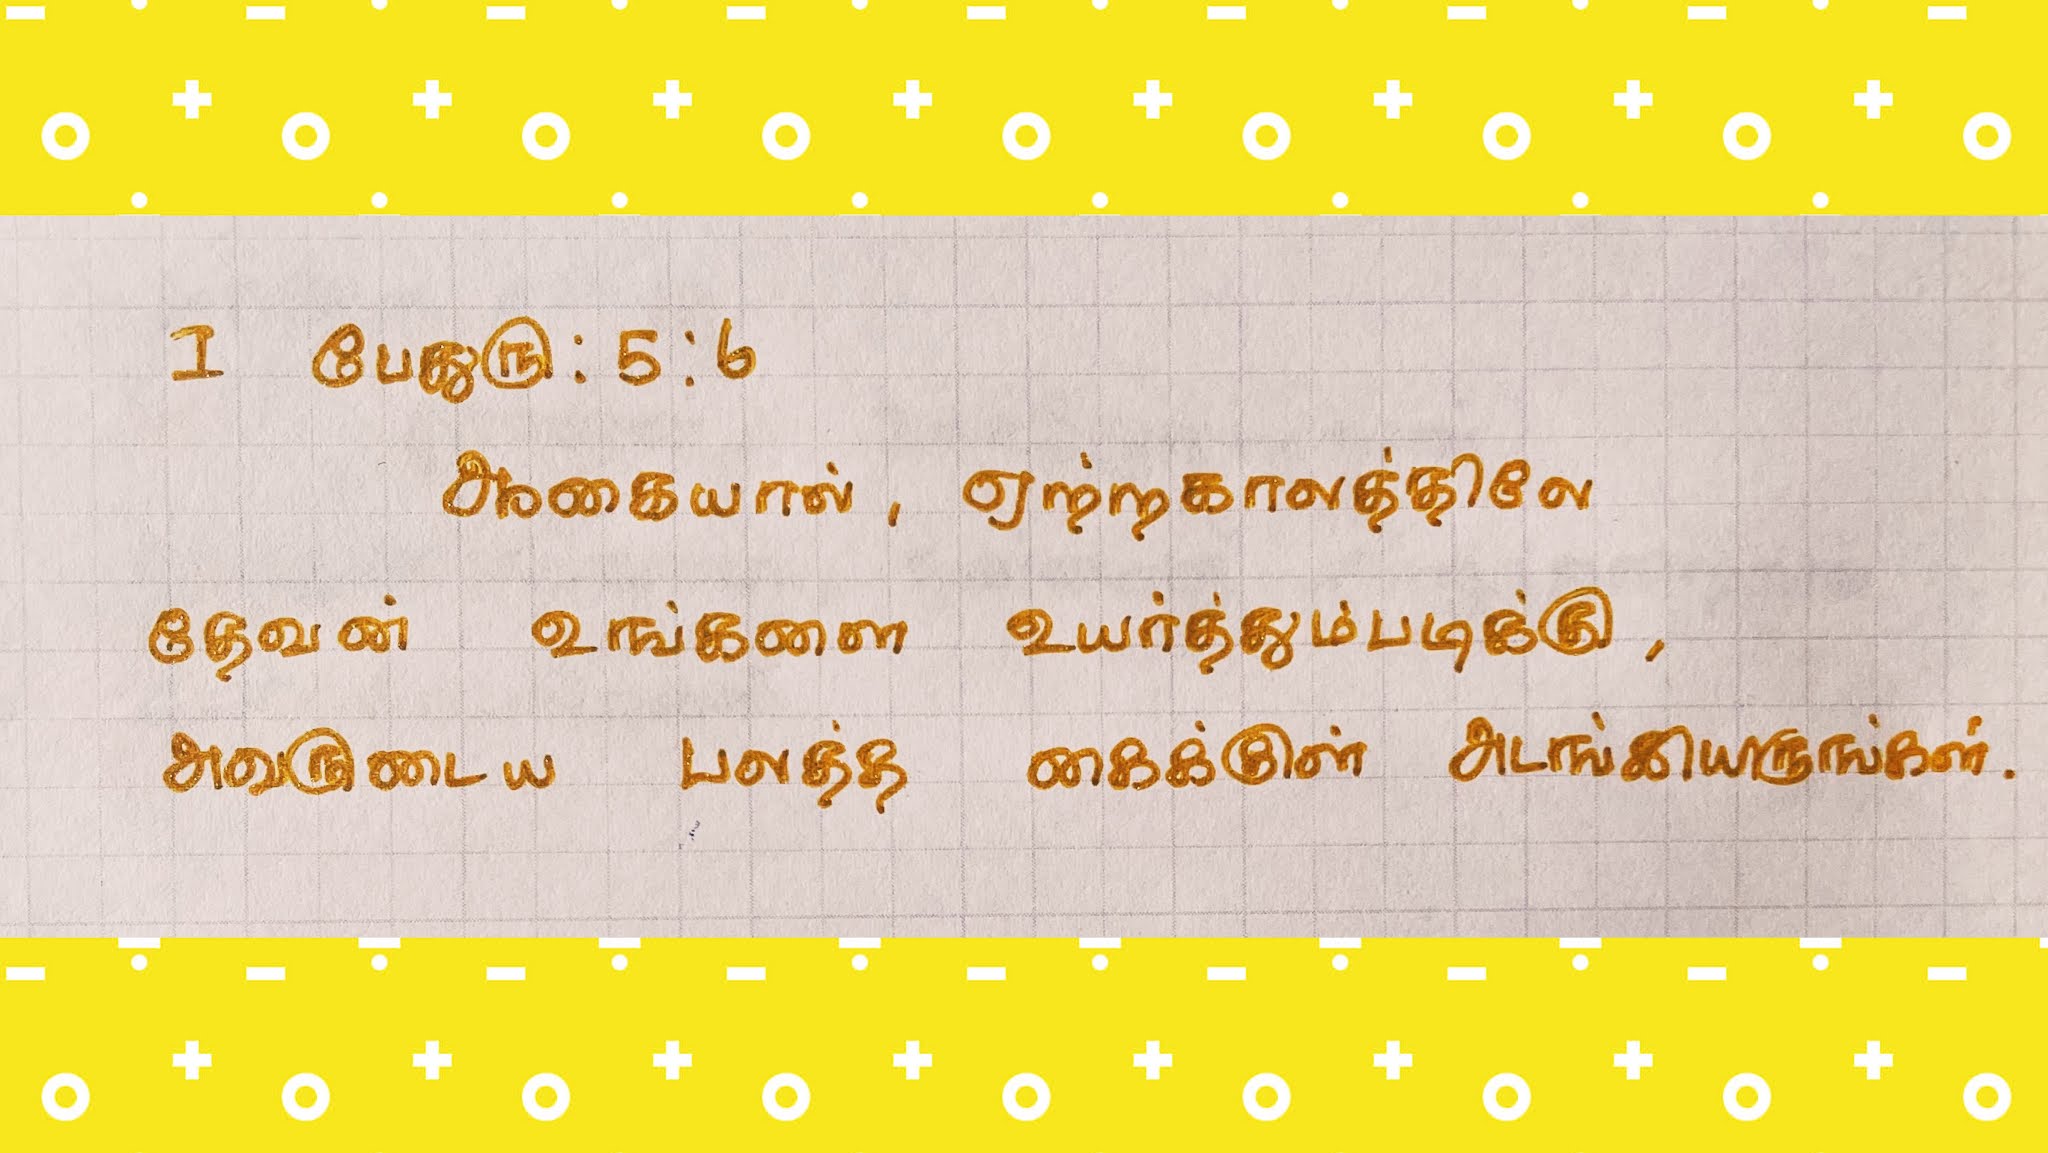 I பேதுரு : 5 : 6
ஆகையால், ஏற்றகாலத்திலே
தேவன் உங்களை உயர்த்தும்படிக்கு,
அவருடைய பலத்த கைக்குள் அடங்கியருங்கள்.